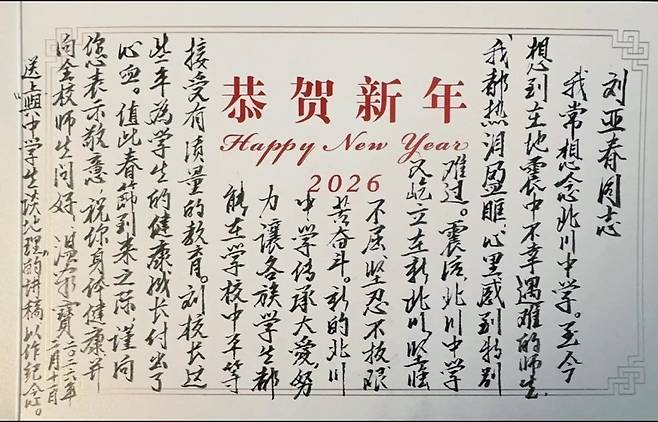 恭贺新年
Happy New Year
2026
刘亚春同志
我常想念北川中学。至今
想到在地震中不幸遇难的师生
我都热泪盈眶，心里感到特别
难过。震后北川中学
又屹立在新北川，坚强
不屈，坚忍不拔，艰
苦奋斗。新的北川
中学传承大爱，努
力让各族学生都
能在学校中平等
接受有质量的教育。刘校长这
些年为学生的健康成长付出了
心血。值此春节到来之际谨向
您表示敬意，祝你身体健康并
向全校师生问好。温家宝
二〇二六年
二月十一日
送上与中学生谈地理的讲稿以作纪念。